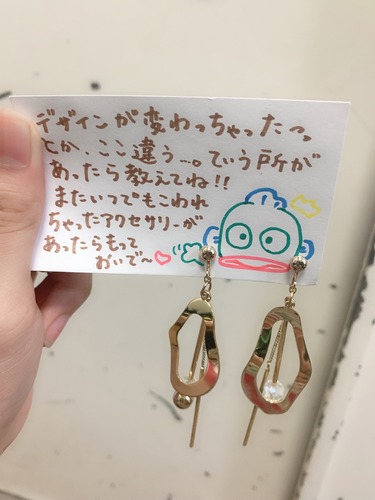 デザインが変わっちゃったっ
とか、ここ違う…。ていう所が
あったら教えてね!!
またいつでもこわれ
ちゃったアクセサリーが
あったらもって
おいで〜